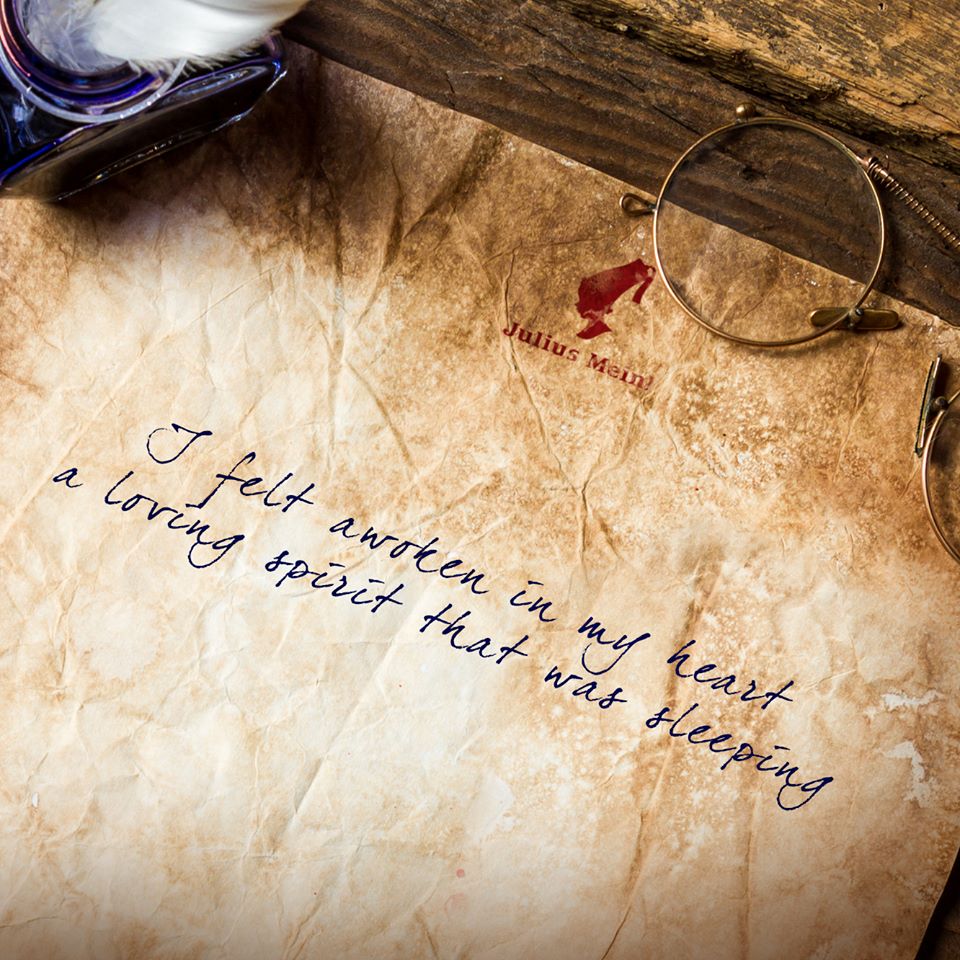 Julius Meinl
I felt awoken in my heart
a loving spirit that was sleeping